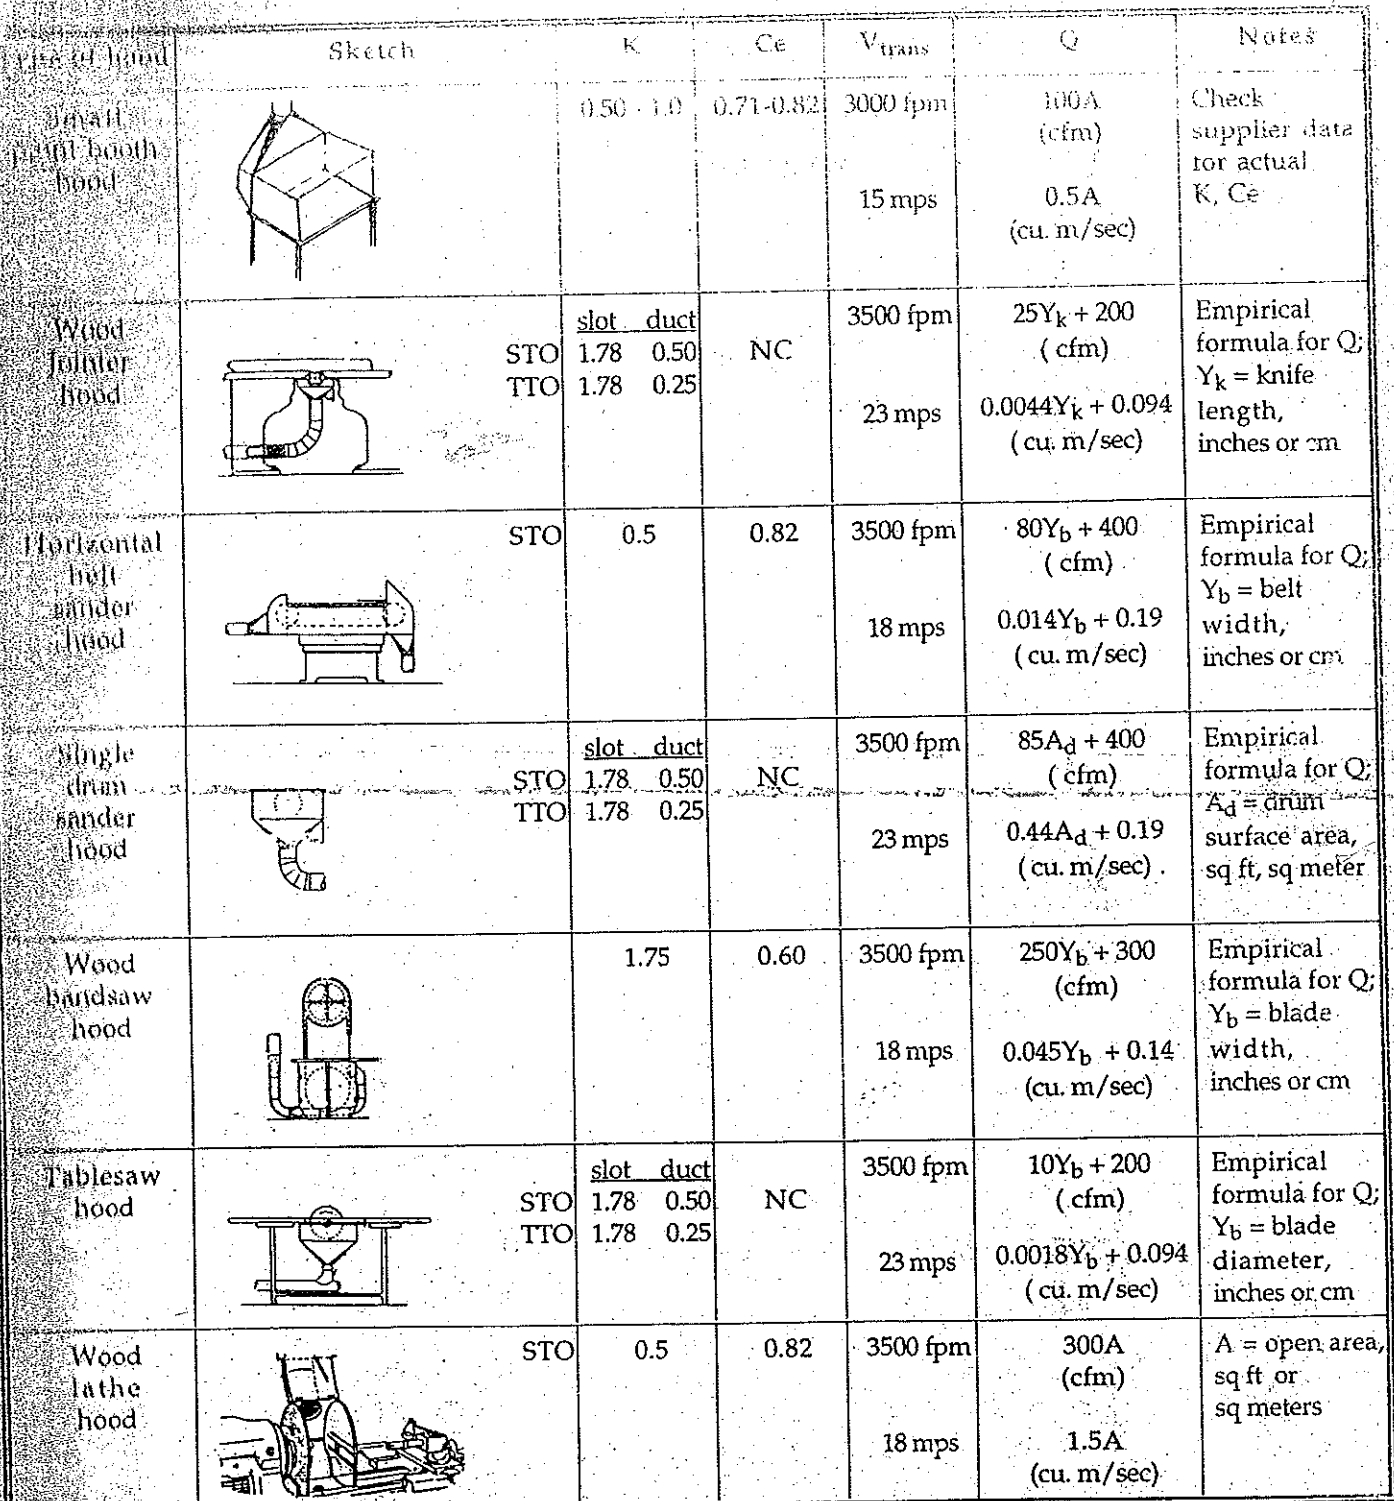 Sketch K Ce Vtrans Q Notes
paint booth hood
0.50 - 1.0 0.71-0.82 3000 fpm 100A (cfm)
15 mps 0.5A (cu. m/sec)
Check
supplier data
for actual
K, Ce
Wood
Jointer
hood
slot duct
STO 1.78 0.50
TTO 1.78 0.25
NC
3500 fpm
23 mps
25Yk + 200
( cfm)
0.0044Yk + 0.094
( cu. m/sec)
Empirical
formula for Q;
Yk = knife
length,
inches or cm
Horizontal
belt
sander
hood
STO 0.5 0.82
3500 fpm
18 mps
80Yb + 400
( cfm)
0.014Yb + 0.19
( cu. m/sec)
Empirical
formula for Q;
Yb = belt
width,
inches or cm
Single
drum
sander
hood
slot duct
STO 1.78 0.50
TTO 1.78 0.25
NC
3500 fpm
23 mps
85Ad + 400
( cfm)
0.44Ad + 0.19
( cu. m/sec)
Empirical
formula for Q;
Ad = drum
surface area,
sq ft, sq meter
Wood
bandsaw
hood
1.75 0.60
3500 fpm
18 mps
250Yb + 300
(cfm)
0.045Yb + 0.14
(cu. m/sec)
Empirical
formula for Q;
Yb = blade
width,
inches or cm
Tablesaw
hood
slot duct
STO 1.78 0.50
TTO 1.78 0.25
NC
3500 fpm
23 mps
10Yb + 200
( cfm)
0.0018Yb + 0.094
( cu. m/sec)
Empirical
formula for Q;
Yb = blade
diameter,
inches or cm
Wood
lathe
hood
STO 0.5 0.82
3500 fpm
18 mps
300A
(cfm)
1.5A
(cu. m/sec)
A = open area,
sq ft or
sq meters